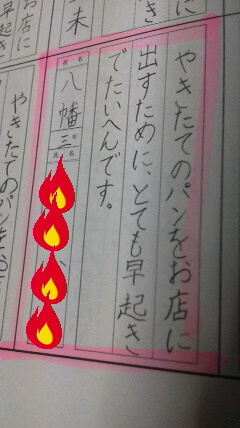 やきたてのパンをお店に
出すために、とても早起き
でたいへんです。
八幡
三年
氏名
やきたてのパンをお店
未
お店に
早起き